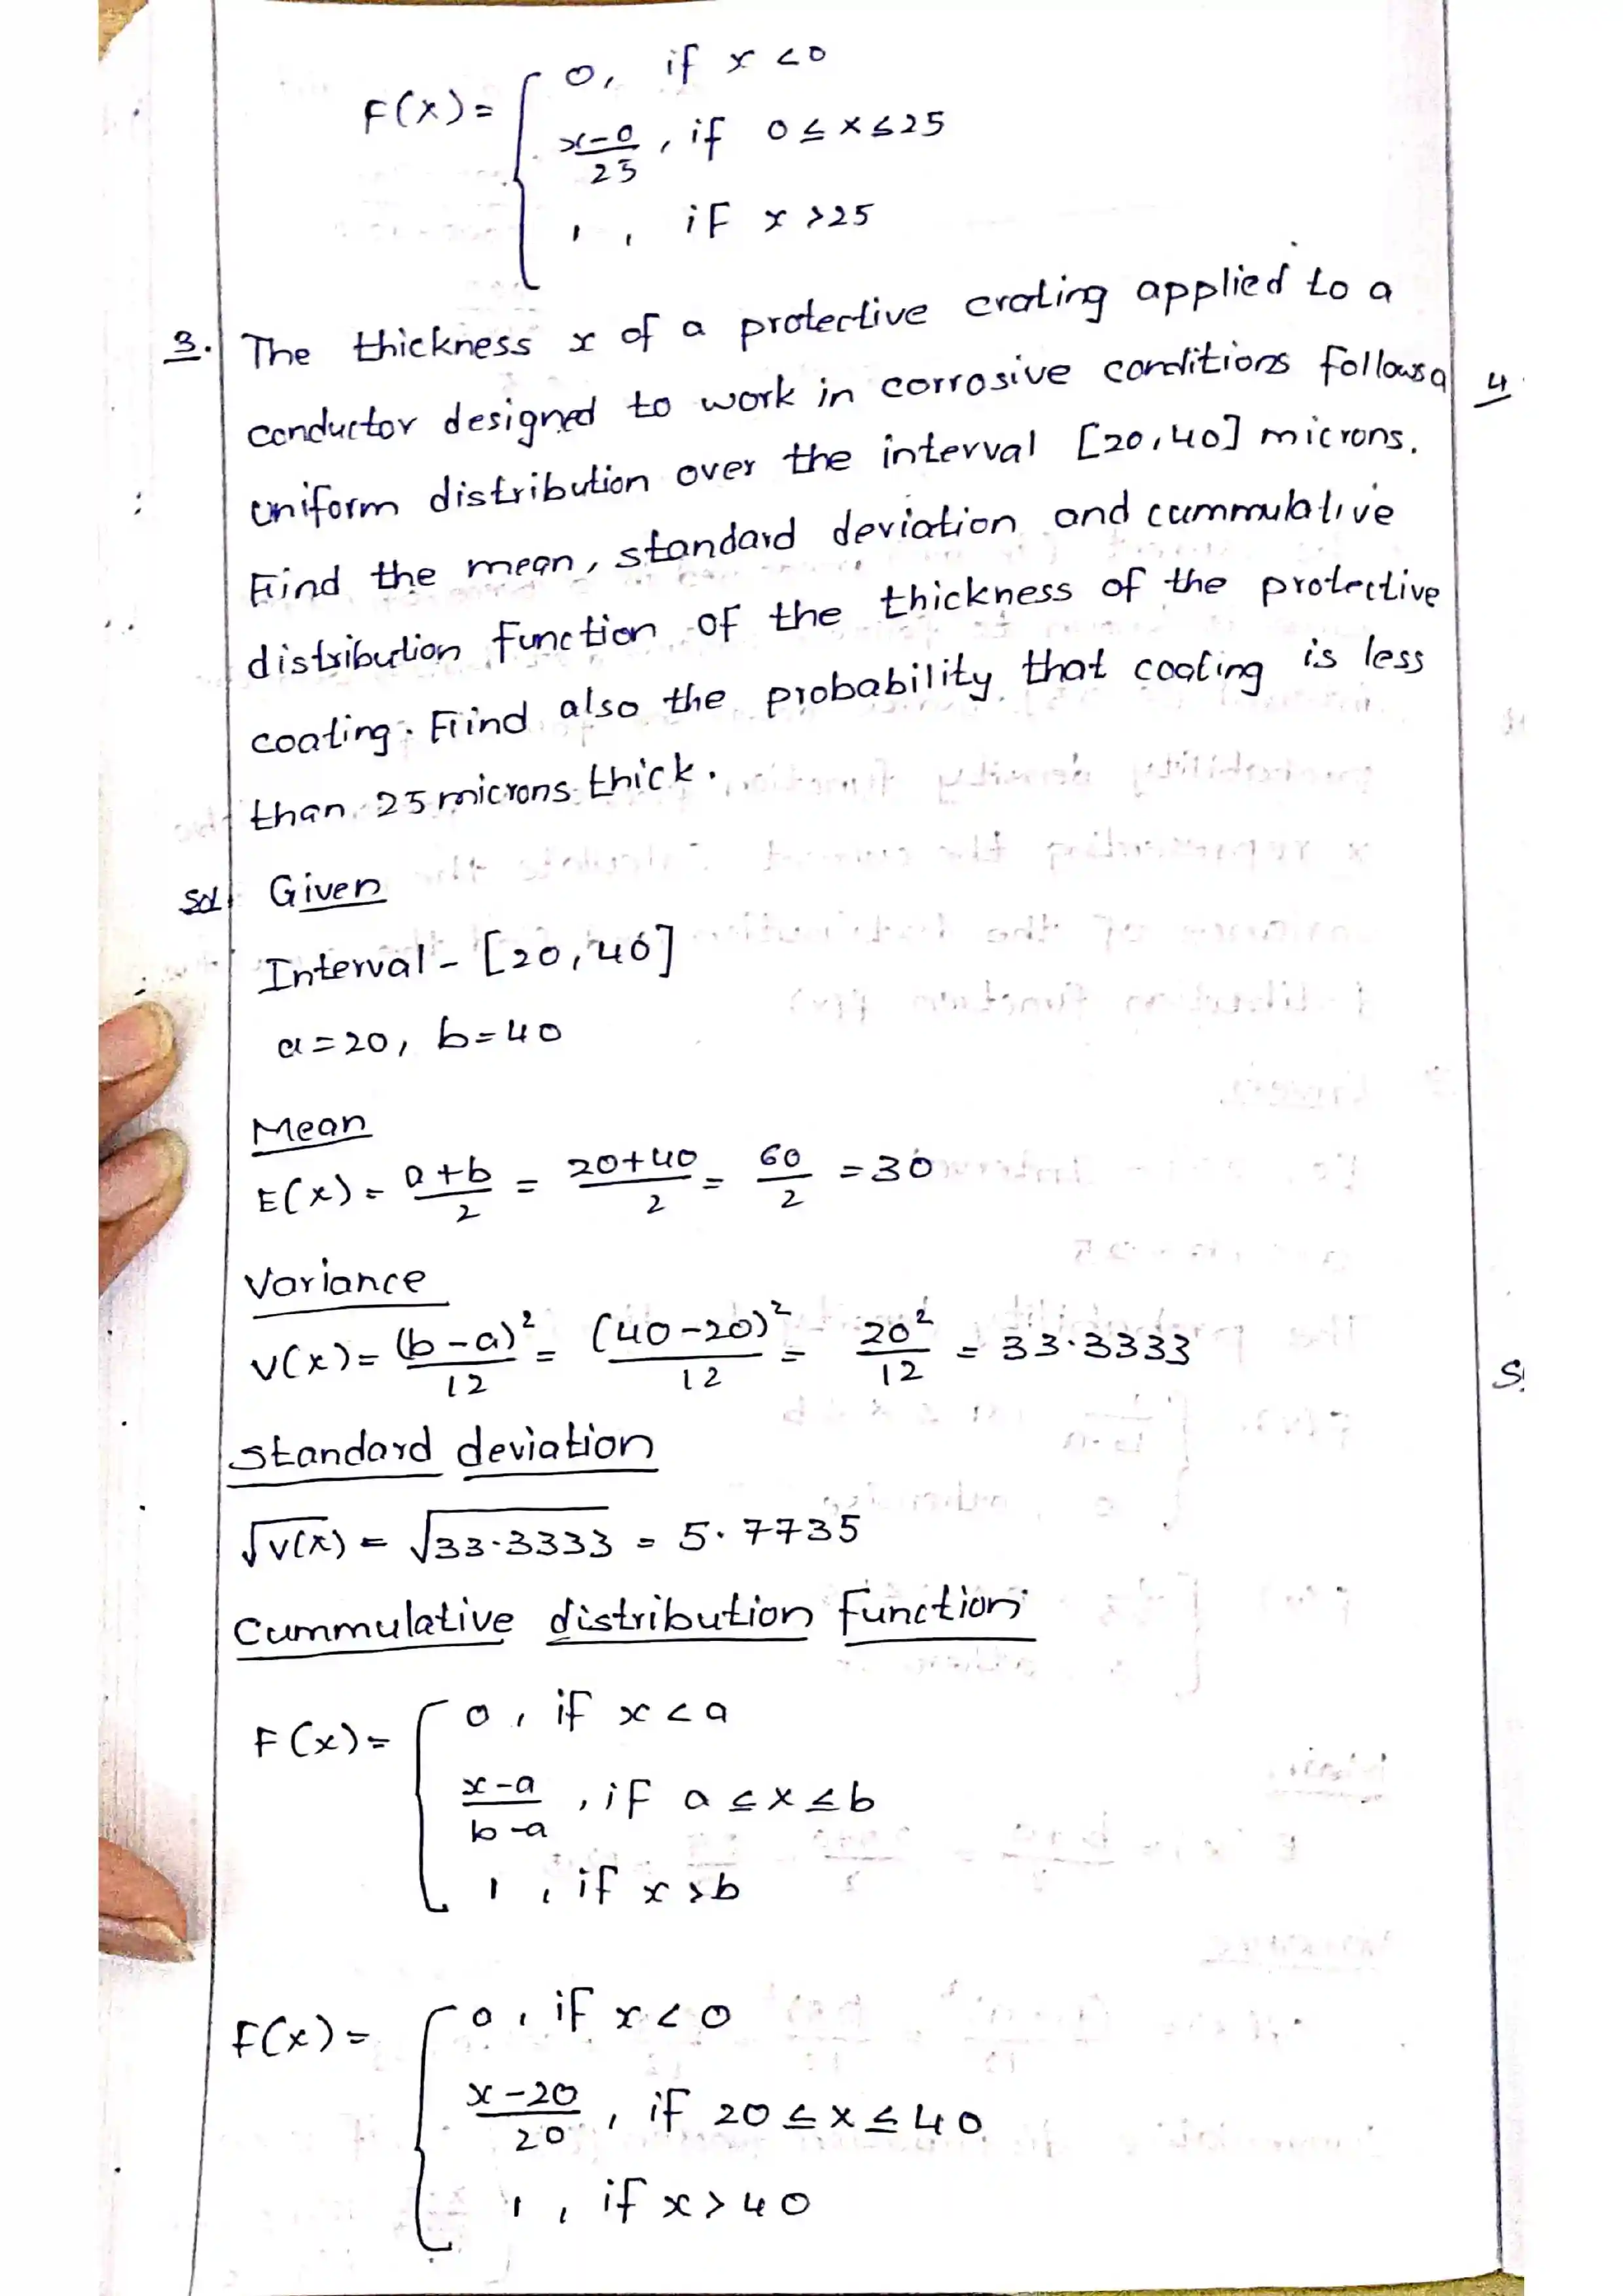 F(x)= { 0, if x <0
x-0/25 , if 0 ≤ x ≤ 25
1 , if x >25
3. The thickness x of a protective crating applied to a
conductor designed to work in corrosive conditions follows a
uniform distribution over the interval [20,40] microns.
Find the mean, standard deviation and cummulative
distribution function of the thickness of the protective
coating. Find also the probability that coating is less
than 25 microns thick.
4
Sol Given
Interval - [20,40]
a=20, b=40
Mean
E(x) = a+b/2 = 20+40/2 = 60/2 = 30
Variance
V(x)= (b-a)²/12 = (40-20)²/12 = 20²/12 = 33.3333
S
Standard deviation
√V(x) = √33.3333 = 5.7735
Cummulative distribution function
F(x)= { 0, if x<a
x-a/b-a , if a ≤ x ≤ b
1 , if x>b
F(x)= { 0, if x<0
x-20/20 , if 20 ≤ x ≤ 40
1 , if x>40